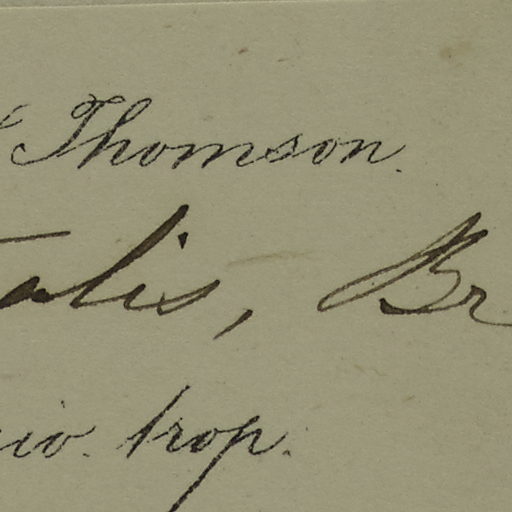 Thomson.
talis, Br
io. trop.